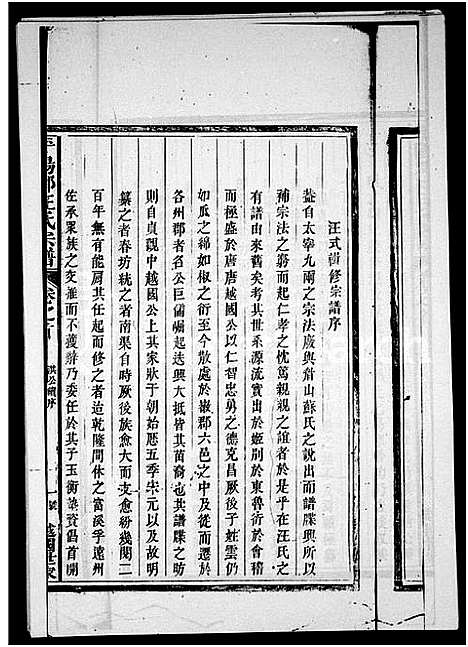 汪氏重修宗譜序
蓋自太宰九兩之宗法廢與眉山蘇氏之說出而譜牒興所以
補宗法之窮而起仁孝之忱篤親親之誼者於是乎在汪氏之
有譜由來舊矣考其世系源流實出於姬別於東魯衍於會稽
而極盛於唐唐越國公以仁智忠勇之德克昌厥後子姓雲仍
如瓜之綿如椒之衍至今散處於徽郡六邑之中及從而遷於
各州郡者名公巨儒崛起迭興大抵皆其苗裔也其譜牒之昉
則自貞觀中越國公上其家狀于朝始歷五季宋元以及故明
纂之者春坊統之者南渠自時厥後族愈大而支愈紛幾閱二
百年無有能厨其任起而修之者迨乾隆間休之富溪孚遠州
佐承眾族之交推而不獲辭乃委任於其子玉衡 贊倡首開
平陽郡汪氏宗譜 卷之
洪公續序
越國世家